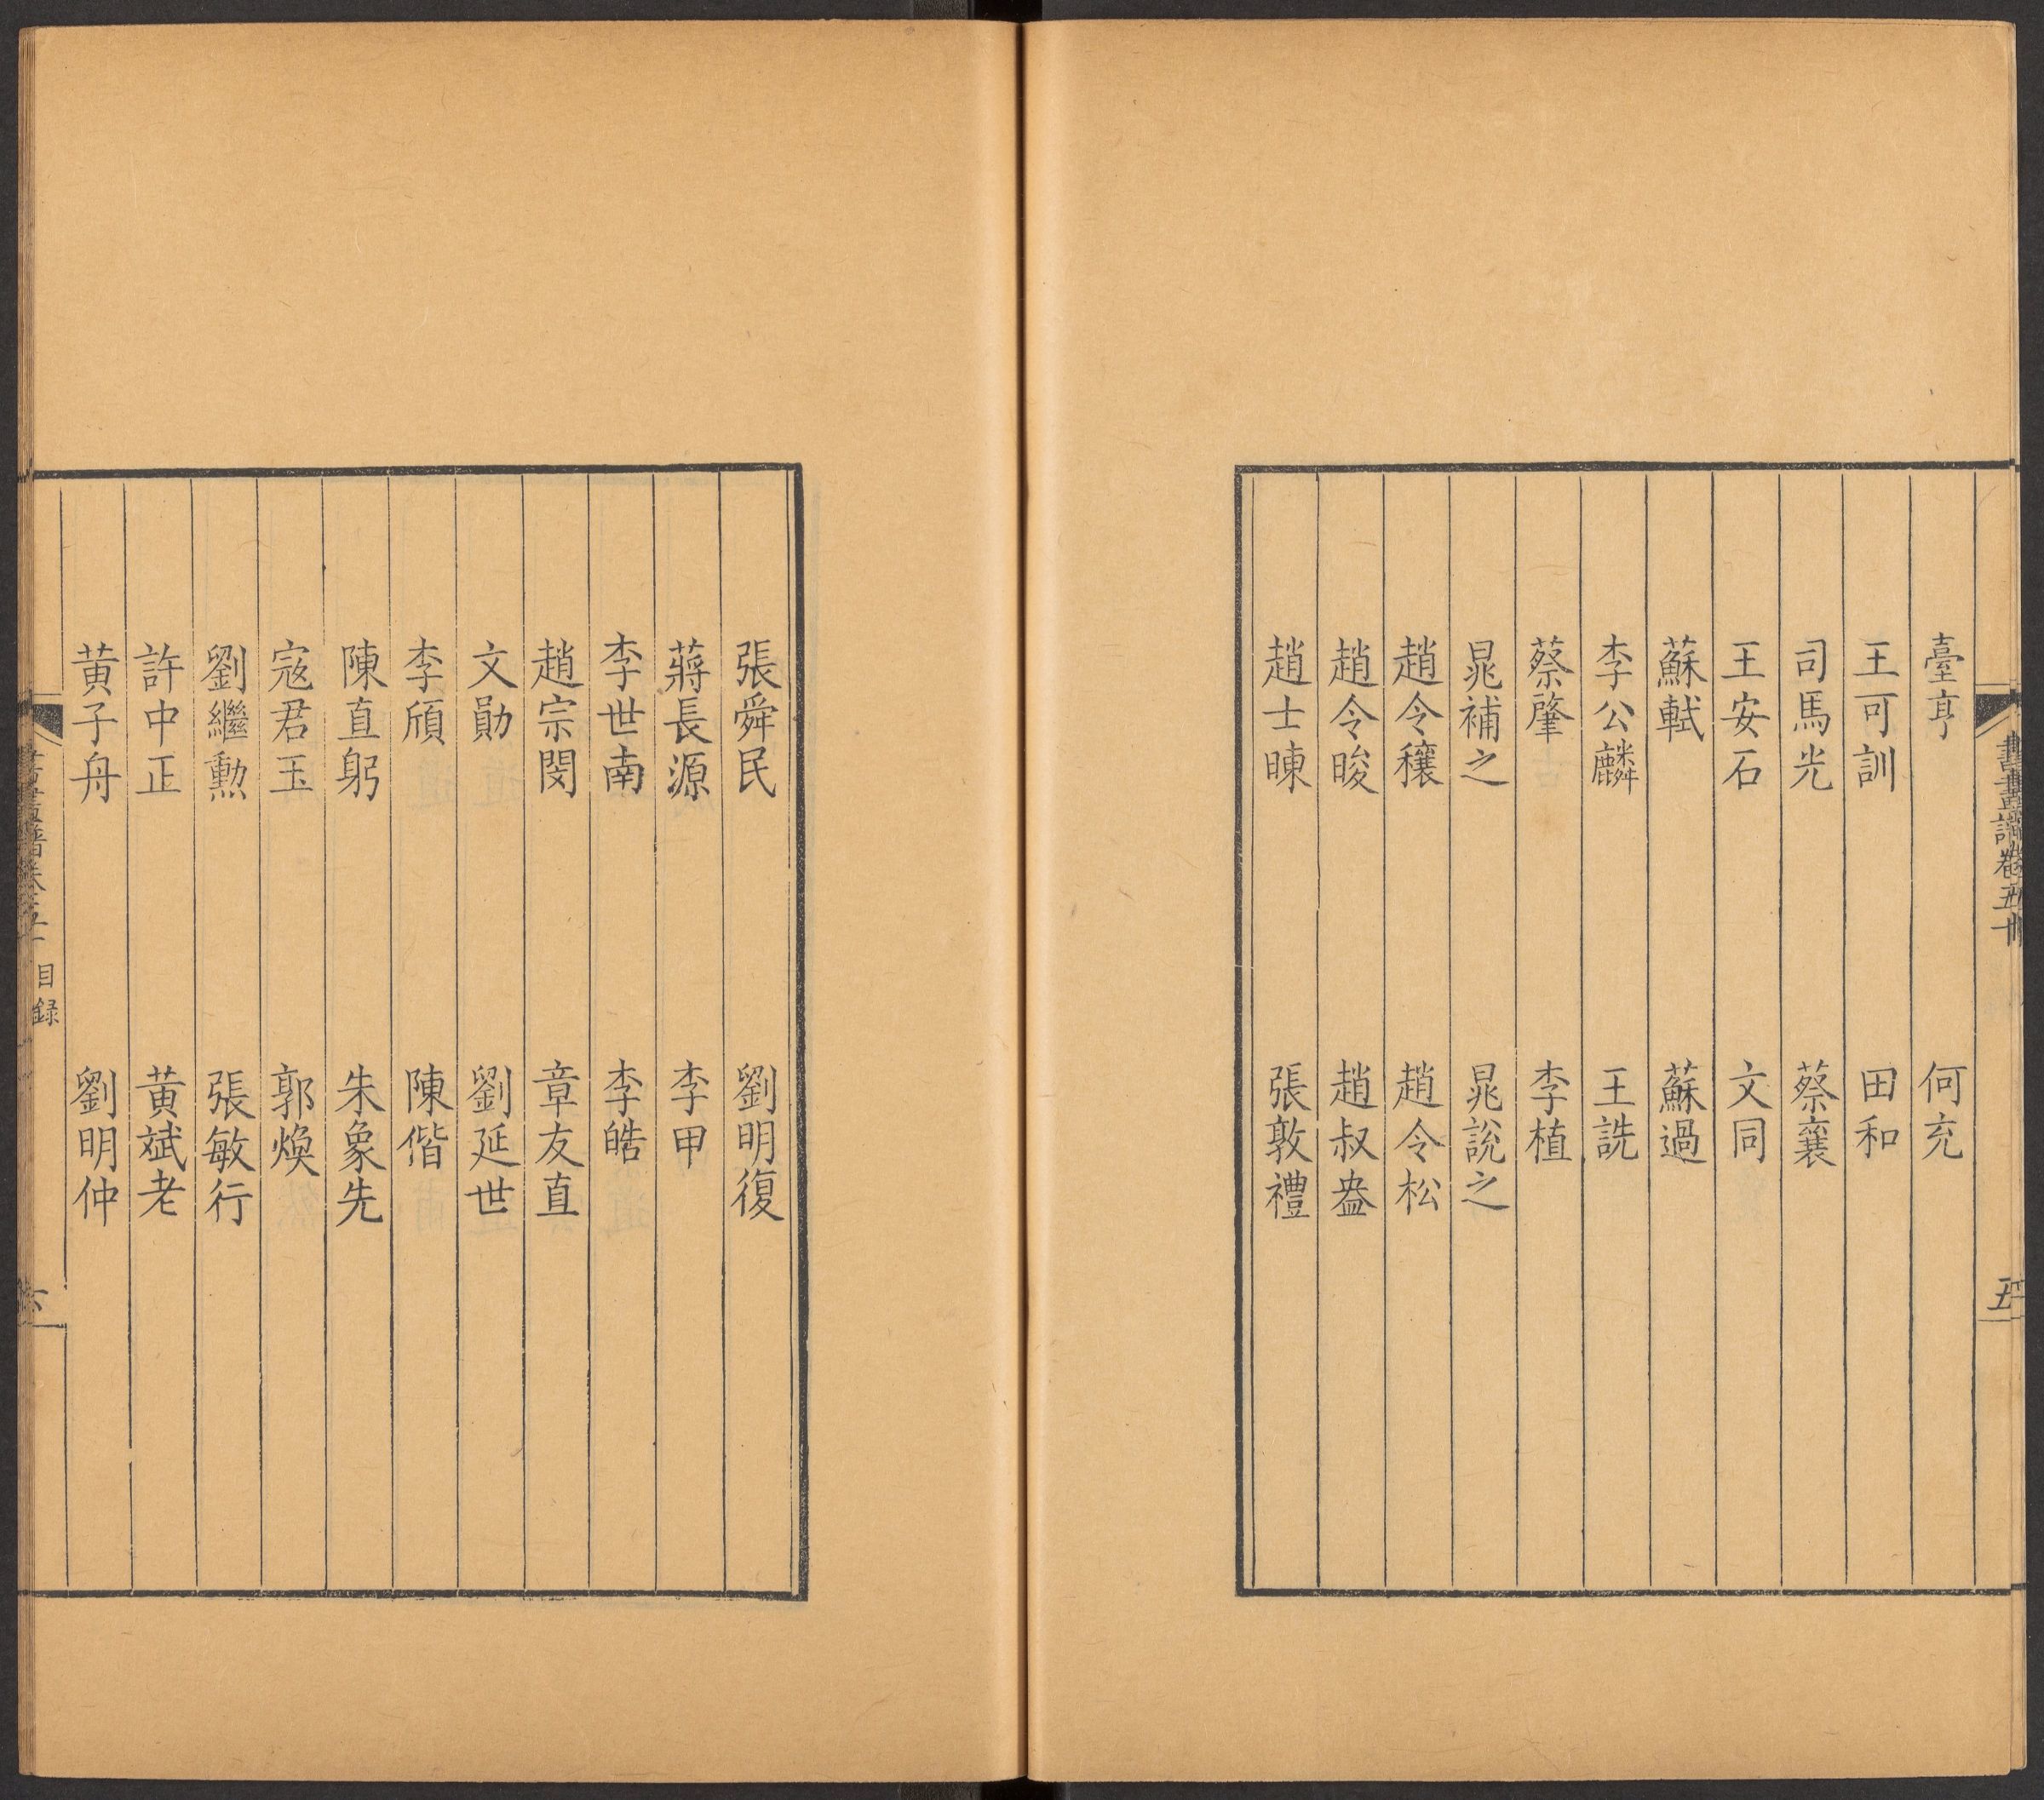 臺亨 何充
王可訓 田和
司馬光 蔡襄
王安石 文同
蘇軾 蘇過
李公麟 王詵
蔡肇 李植
晁補之 晁說之
趙令穰 趙令松
趙令晙 趙叔盎
趙士暕 張敦禮
書畫譜卷五十
五
張舜民 劉明復
蔣長源 李甲
李世南 李皓
趙宗閔 章友直
文勛 劉延世
李頎 陳偕
陳直躬 朱象先
寇君玉 郭煥
劉繼勲 張敏行
許中正 黄斌老
黄子舟 劉明仲
目録
六